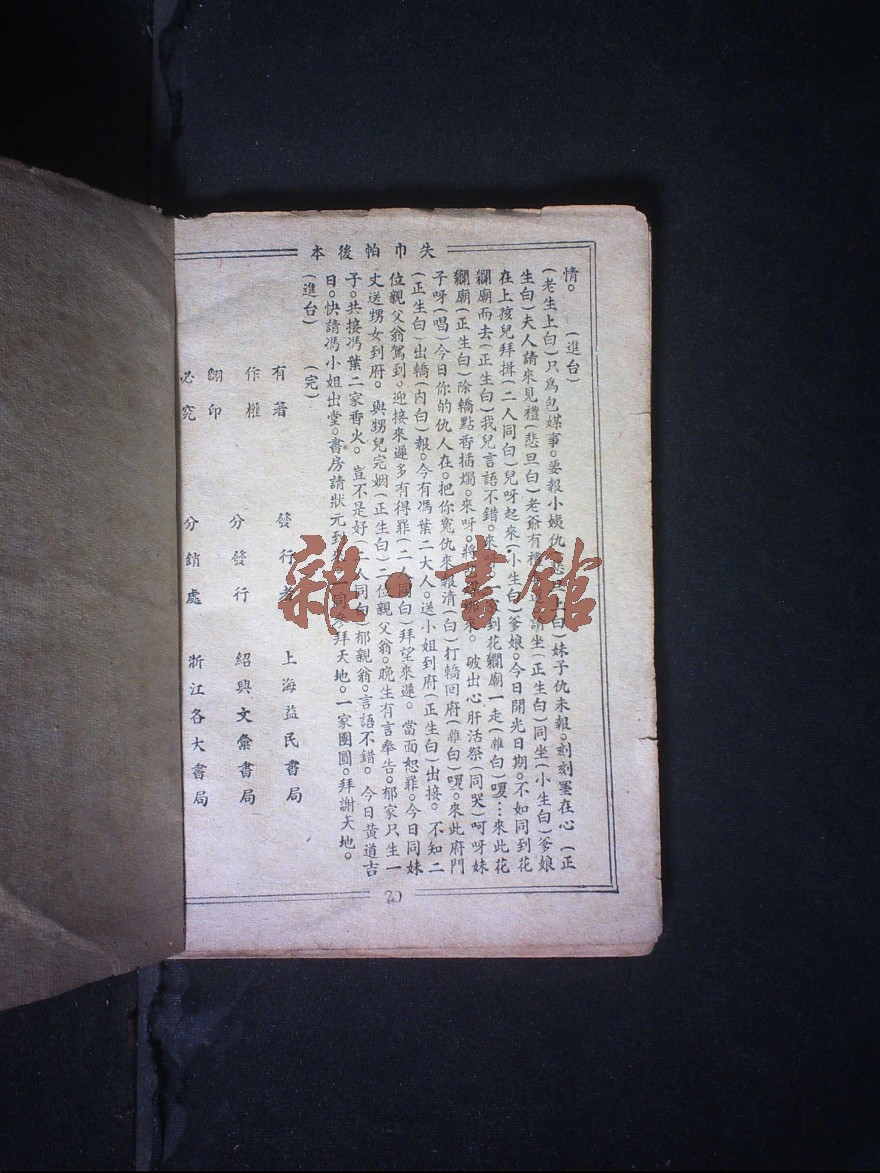 失巾帕後本
情。　(進台)
(老生上白)只爲包媒事。要報小姨仇　上白)妹子仇未報。刻刻墨在心　(正
生白)夫人請來見禮(悲旦白)老爺有禮　請坐(正生白)同坐(小生白)爹娘
在上孩兒拜揖(二人同白)兒呀起來。(小生白)爹娘。今日開光日期。不如同到花
糷廟而去(正生白)我兒言語不錯。來　到花糷廟一走(雜白)嗄…來此花
糷廟(正生白)除轎點香插燭。來呀。將　破出心肝活祭(同哭)呵呀妹
子呀(唱)今日你的仇人在。把你冤仇來報清(白)打轎回府(雜白)嗄。來此府門
(正生白)出轎(內白)報。今有馮葉二大人。送小姐到府(正生白)出接。不知二
位親父翁駕到。迎接來遲多有得罪(二人同白)拜望來遲。當面恕罪。今日同妹
丈送甥女到府。與甥兒完姻(正生白)二位親父翁。晚生有言奉告。郁家只生一
子。共接馮葉二家香火。豈不是好(二人同白)郁親翁。言語不錯。今日黃道吉
日。快請馮小姐出堂。書房請狀元到來。一同參拜天地。一家團圓。拜謝天地。
(進台)　(完)
有著
作權
翻印
必究
發行者　上海益民書局
分發行　紹興文彙書局
分銷處　浙江各大書局
20
雜・書館